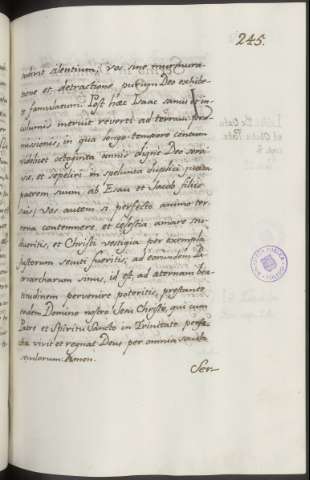 245.
silentium, vos sine murmura-
tione et detractione, Deo exhibe-
te famulatum. Post hæc Isaac sanus et in-
columis meruit reverti ad terram pro-
missionis, in qua longo tempore centum
octoginta annis digne Deo servi-
re, et sepeliri in spelunca duplici juxta
patrem suum ab Esau et Jacob filiis
suis; Vos autem si perfecto animo ter-
rena contemnere, et celestia amare stu-
dueritis, et Christi vestigia per exempla
justorum secuti fueritis, ad eorundem Pa-
triarcharum sinus, id est, ad æternam bea-
titudinem pervenire poteritis, præstante
Domino nostro Jesu Christo, qui cum
Patre et Spiritu Sancto in Trinitate perfec-
ta vivit et regnat Deus per omnia sæcula
sæculorum. Amen.
Ser-